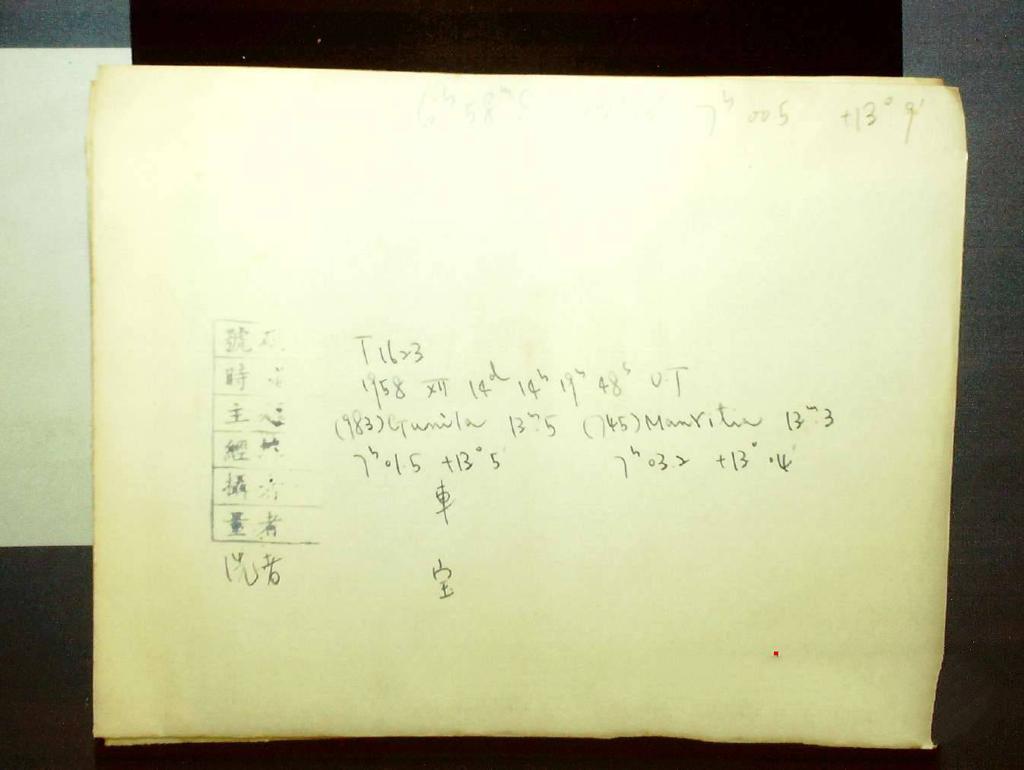 7ʰ 00.5 +13° 9'
號
T1623
時
1958 XII 14ᵈ 14ʰ 19ᵐ 48ˢ UT
主
(983) Gunila 13ᵐ.5 (745) Mauritia 13ᵐ.3
經
7ʰ 01.5 +13° 5' 7ʰ 03.2 +13° .4'
攝 者 車
量者
洗者 宝